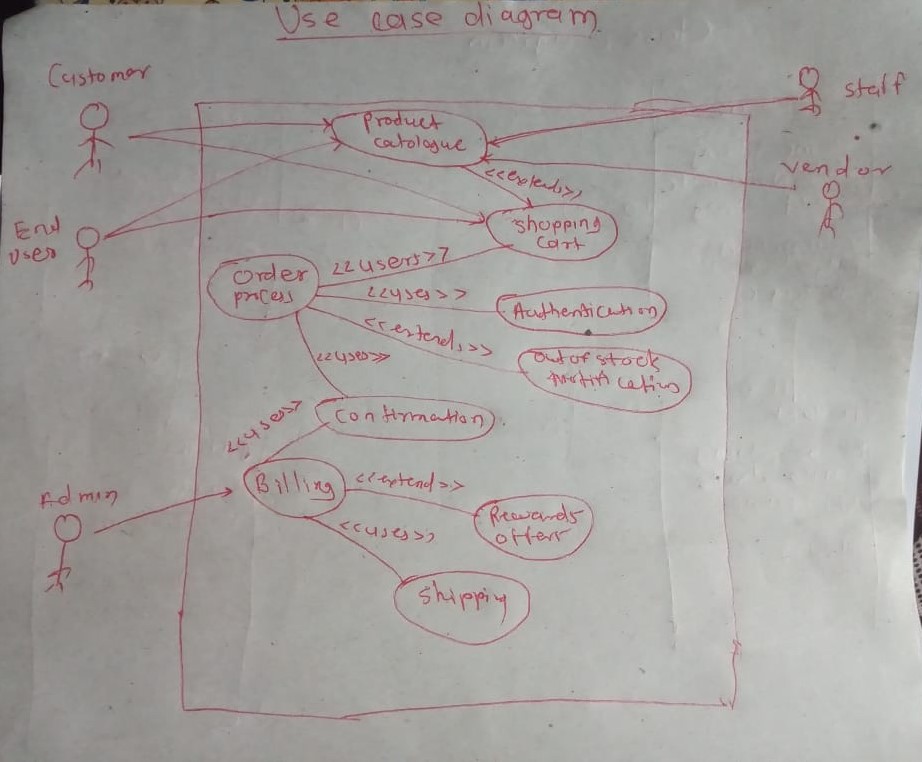 Use case diagram
Customer
Staff
Product
catologue
vendor
<<extends>>
End
user
shopping
cart
<<users>>
Order
process
<<uses>>
Authentication
<<extends>>
out of stock
<<uses>>
<<uses>>
Confirmation
Billing
<<extend>>
Admin
Rewards
offers
<<uses>>
shipping